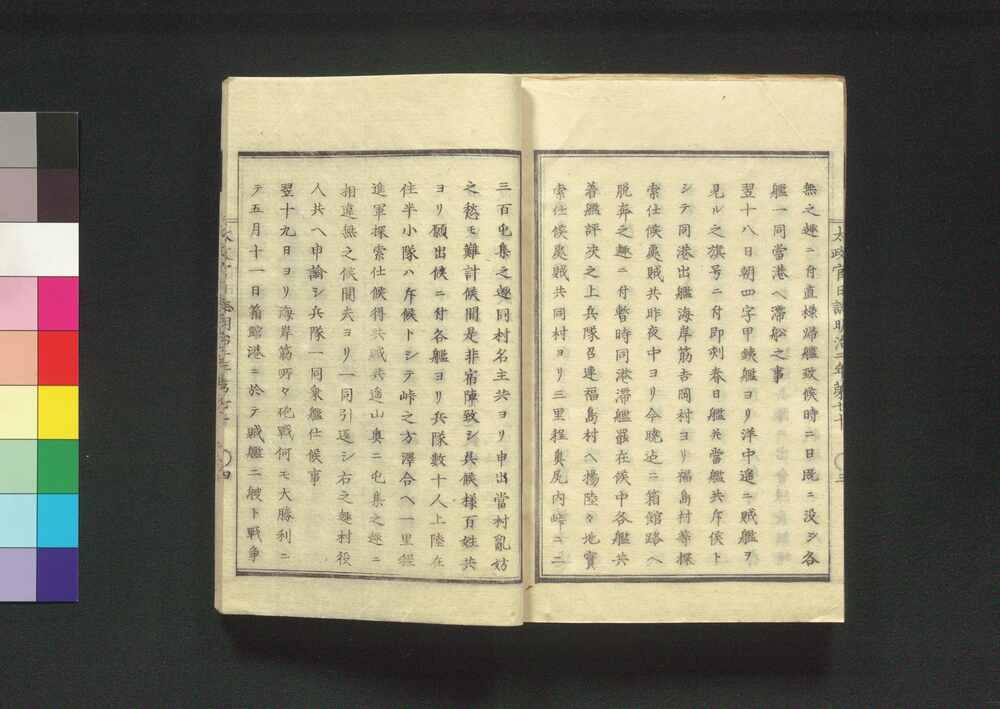 無之趣ニ付直樣帰艦致候時ニ日既ニ没シ各
艦一同當港ヘ滞船之事
翌十八日朝四字甲鉄艦ヨリ洋中遥ニ賊艦ヲ
見ルノ旗号ニ付即刻春日艦并當艦共斥候ト
シテ同港出艦海岸筋吉岡村ヨリ福島村等探
索仕候處賊共昨夜中ヨリ今曉迠ニ箱館路ヘ
脱奔之趣ニ付暫時同港滞艦罷在候中各艦共
着艦評决之上兵隊召連福島村ヘ揚陸々地實
索仕候處賊共同村ヨリ三里程奥尻内峠ニ二
三百屯集之趣同村名主共ヨリ申出當村亂妨
之愁モ難計候間是非宿陣致シ呉候様百姓共
ヨリ願出候ニ付各艦ヨリ兵隊數十人上陸在
住半小隊ハ斥候トシテ峠之方澤合ヘ一里程
進軍探索仕候得共賊共遥山奥ニ屯集之趣ニ
相違無之候間夫ヨリ一同引返シ右之趣村役
人共ヘ申諭シ兵隊一同乗艦仕候事
翌十九日ヨリ海岸筋所々砲戰何モ大勝利ニ
テ五月十一日箱館港ニ於テ賊艦二艘ト戰争
太政官日誌明治二年第七十
三
四